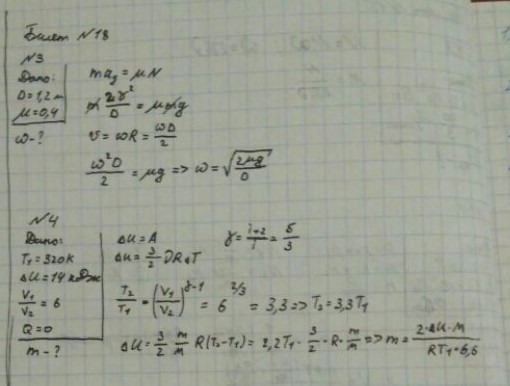 Билет №18
№3
Дано:
D=1,2 м
μ=0,4
ω-?
maц = μN
m 2v²/D = μmg
v = ωR = ωD/2
ω²D/2 = μg => ω = √(2μg/D)
№4
Дано:
T₁=320К
ΔU=14 кДж
V₁/V₂ = 6
Q=0
m-?
ΔU=A
γ = i+2/i = 5/3
ΔU = 3/2 νRΔT
T₂/T₁ = (V₁/V₂)^γ-1 = 6^2/3 = 3,3 => T₂ = 3,3T₁
ΔU = 3/2 m/M R(T₂-T₁) = 2,2T₁ · 3/2 · R · m/M => m = 2·ΔU·M/RT₁·6,6